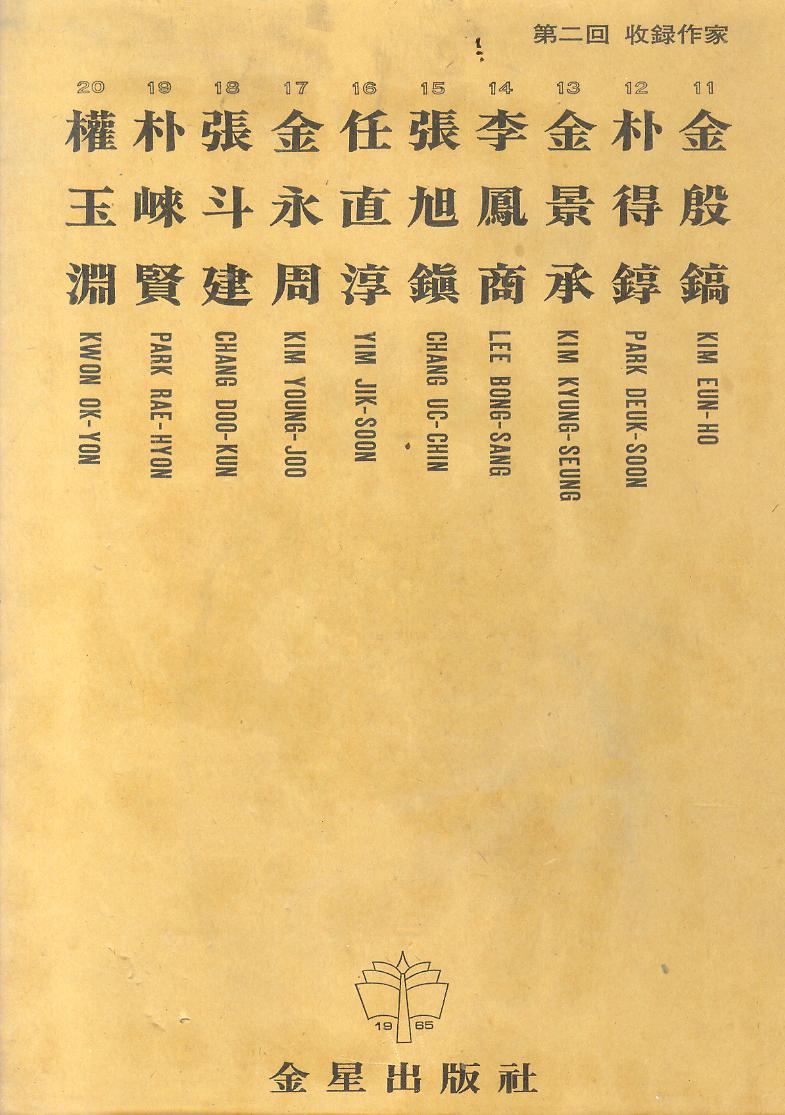 第二回 収録作家
11
金殷鎬
KIM EUN-HO
12
朴得錞
PARK DEUK-SOON
13
金景承
KIM KYUNG-SEUNG
14
李鳳商
LEE BONG-SANG
15
張旭鎭
CHANG UC-CHIN
16
任直淳
YIM JIK-SOON
17
金永周
KIM YOUNG-JOO
18
張斗建
CHANG DOO-KUN
19
朴崍賢
PARK RAE-HYON
20
權玉淵
KWON OK-YON
1965
金星出版社